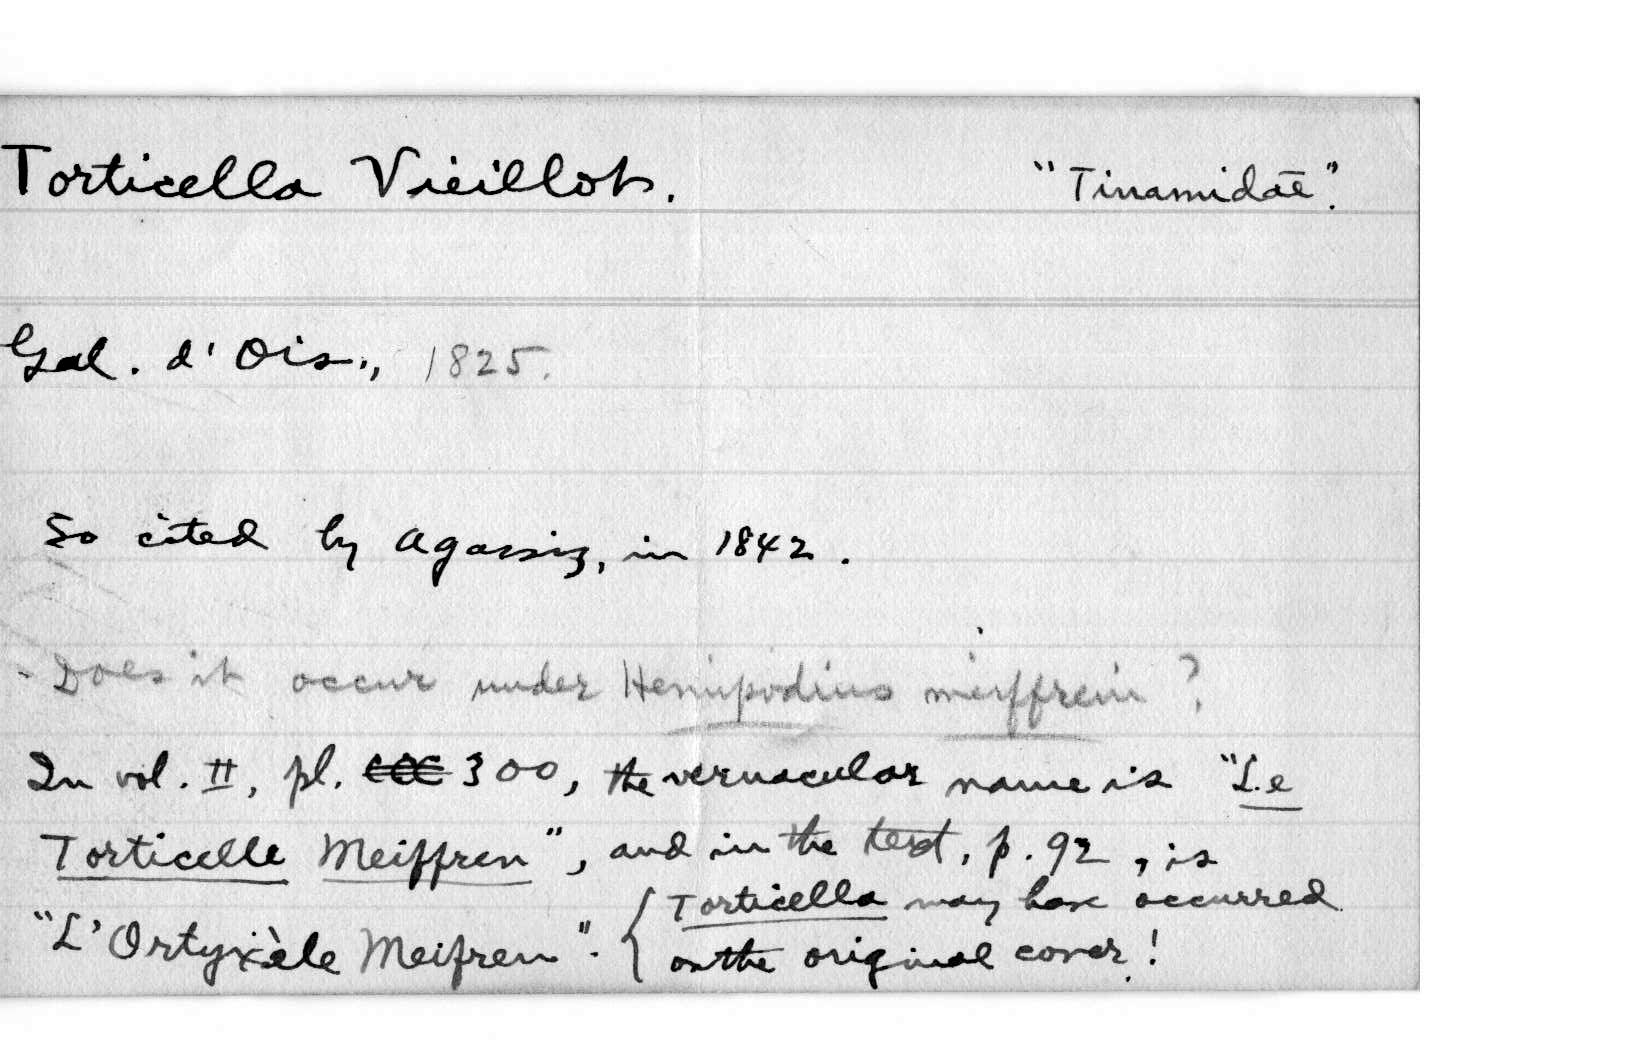 Torticella Vieillot. "Tinamidae".
Gal. d'Ois., 1825.
So cited by Agassiz, in 1842.
- Does it occur under Hemipodius meiffrenii ?
In vol. II, pl. CCC 300, the vernacular name is "Le
Torticelle Meiffren", and in the text, p. 92, is
"L'Ortyxèle Meifren". { Torticella may have occurred
on the original cover!